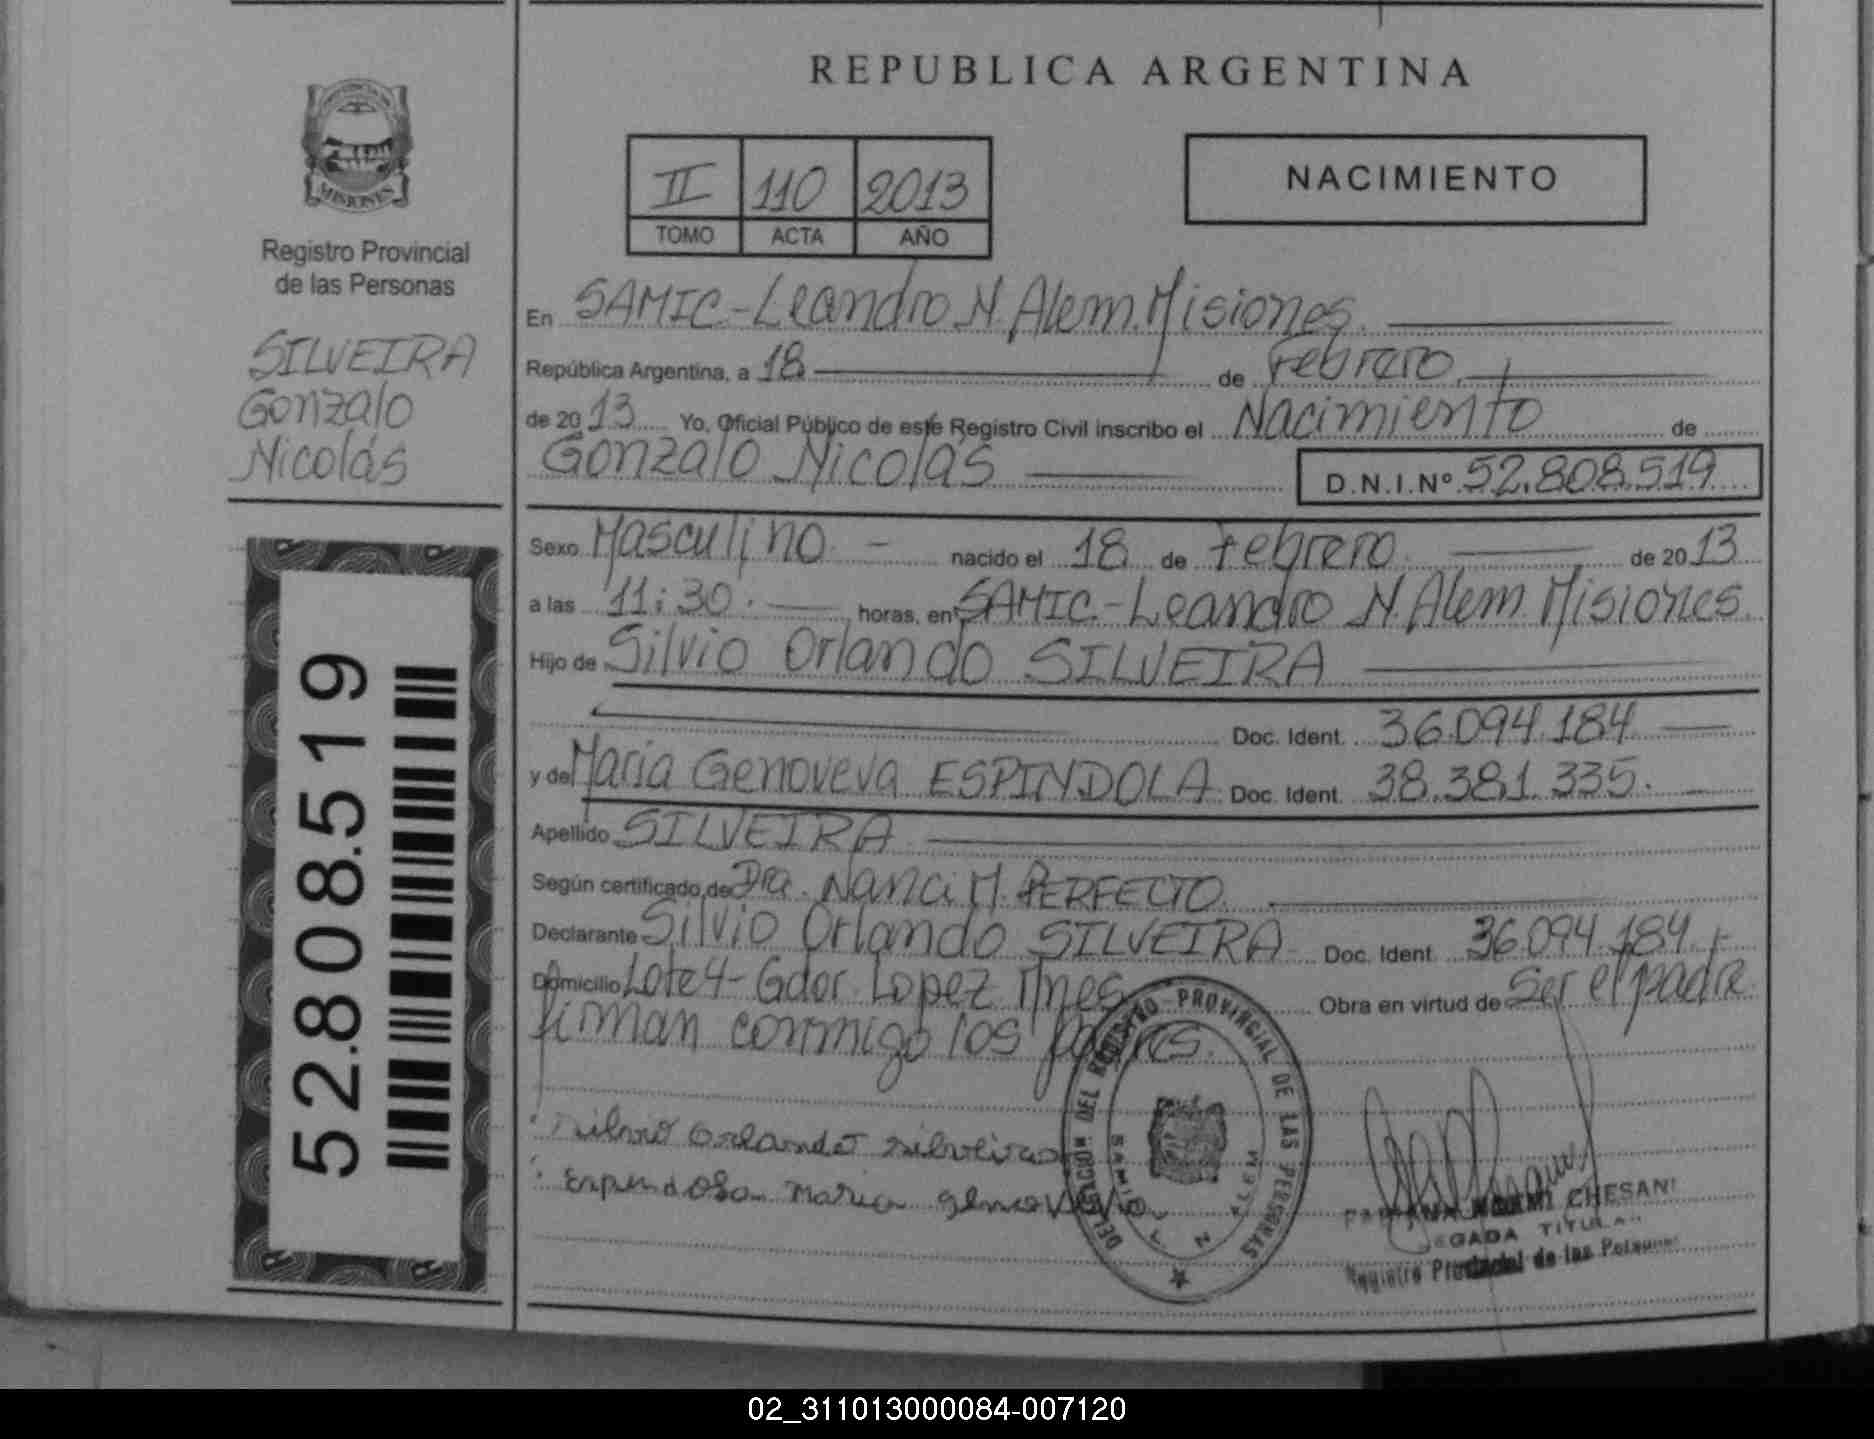 REPUBLICA ARGENTINA
MISIONES
Registro Provincial
de las Personas
SILVEIRA
Gonzalo
Nicolás
52.808.519
II 110 2013
TOMO ACTA AÑO
NACIMIENTO
En SAMIC-Leandro N. Alem. Misiones.
República Argentina, a 18 de Febrero
de 2013 Yo, Oficial Público de este Registro Civil inscribo el Nacimiento de
Gonzalo Nicolás D.N.I.Nº 52.808.519
Sexo Masculino - nacido el 18 de Febrero de 2013
a las 11:30. horas, en SAMIC-Leandro N. Alem. Misiones.
Hijo de Silvio Orlando SILVEIRA
Doc. Ident. 36.094.184
y de Maria Genoveva ESPINDOLA Doc. Ident. 38.381.335.
Apellido SILVEIRA
Según certificado de Dra. Nanci M. PERFECTO
Declarante Silvio Orlando SILVEIRA Doc. Ident. 36.094.184
Domicilio Lote 4- Gdor. Lopez Mnes Obra en virtud de Ser el padre
firman conmigo los padres.
Silvio Orlando Silveira
Espindola Maria
DELEGACION DEL REGISTRO PROVINCIAL DE LAS PERSONAS
SAMIC L. N. ALEM
CHESANI
TITULAR
Registro Provincial de las Personas
02_311013000084-007120